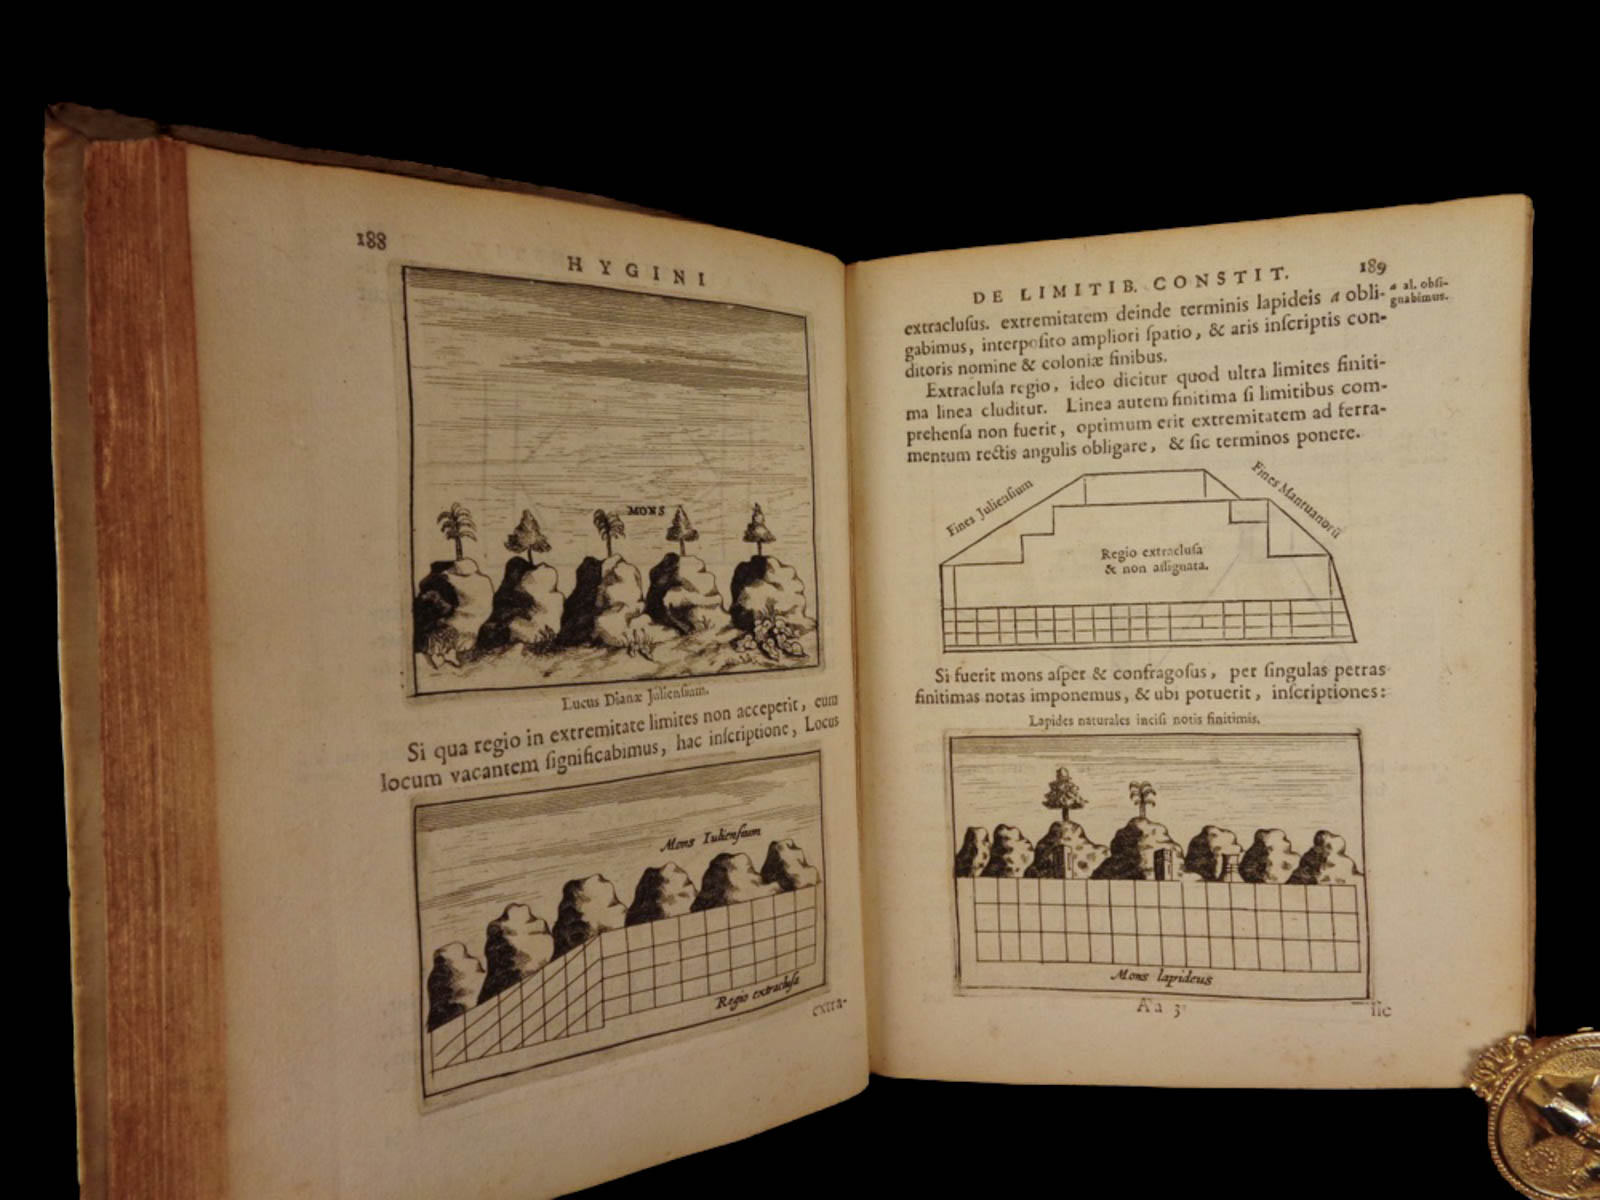 188
HYGINI
MONS
Lucus Dianæ Juliensium.
Si qua regio in extremitate limites non acceperit, eum
locum vacantem ſignificabimus, hac inſcriptione, Locus
Mons Iulienſium
Regio extracluſa
extra-
DE LIMITIB. CONSTIT.
189
extracluſus. extremitatem deinde terminis lapideis a obli-
gabimus, interpoſito ampliori ſpatio, & aris inſcriptis con-
ditoris nomine & coloniæ finibus.
a al. obſi-
gnabimus.
Extracluſa regio, ideo dicitur quod ultra limites finiti-
ma linea cluditur. Linea autem finitima ſi limitibus com-
prehenſa non fuerit, optimum erit extremitatem ad ferra-
mentum rectis angulis obligare, & ſic terminos ponere.
Fines Julienſium
Fines Mantuanorũ
Regio extracluſa
& non aſſignata.
Si fuerit mons aſper & confragoſus, per ſingulas petras
finitimas notas imponemus, & ubi potuerit, inſcriptiones:
Lapides naturales inciſi notis finitimis.
Mons lapideus
Aa 3
ſic